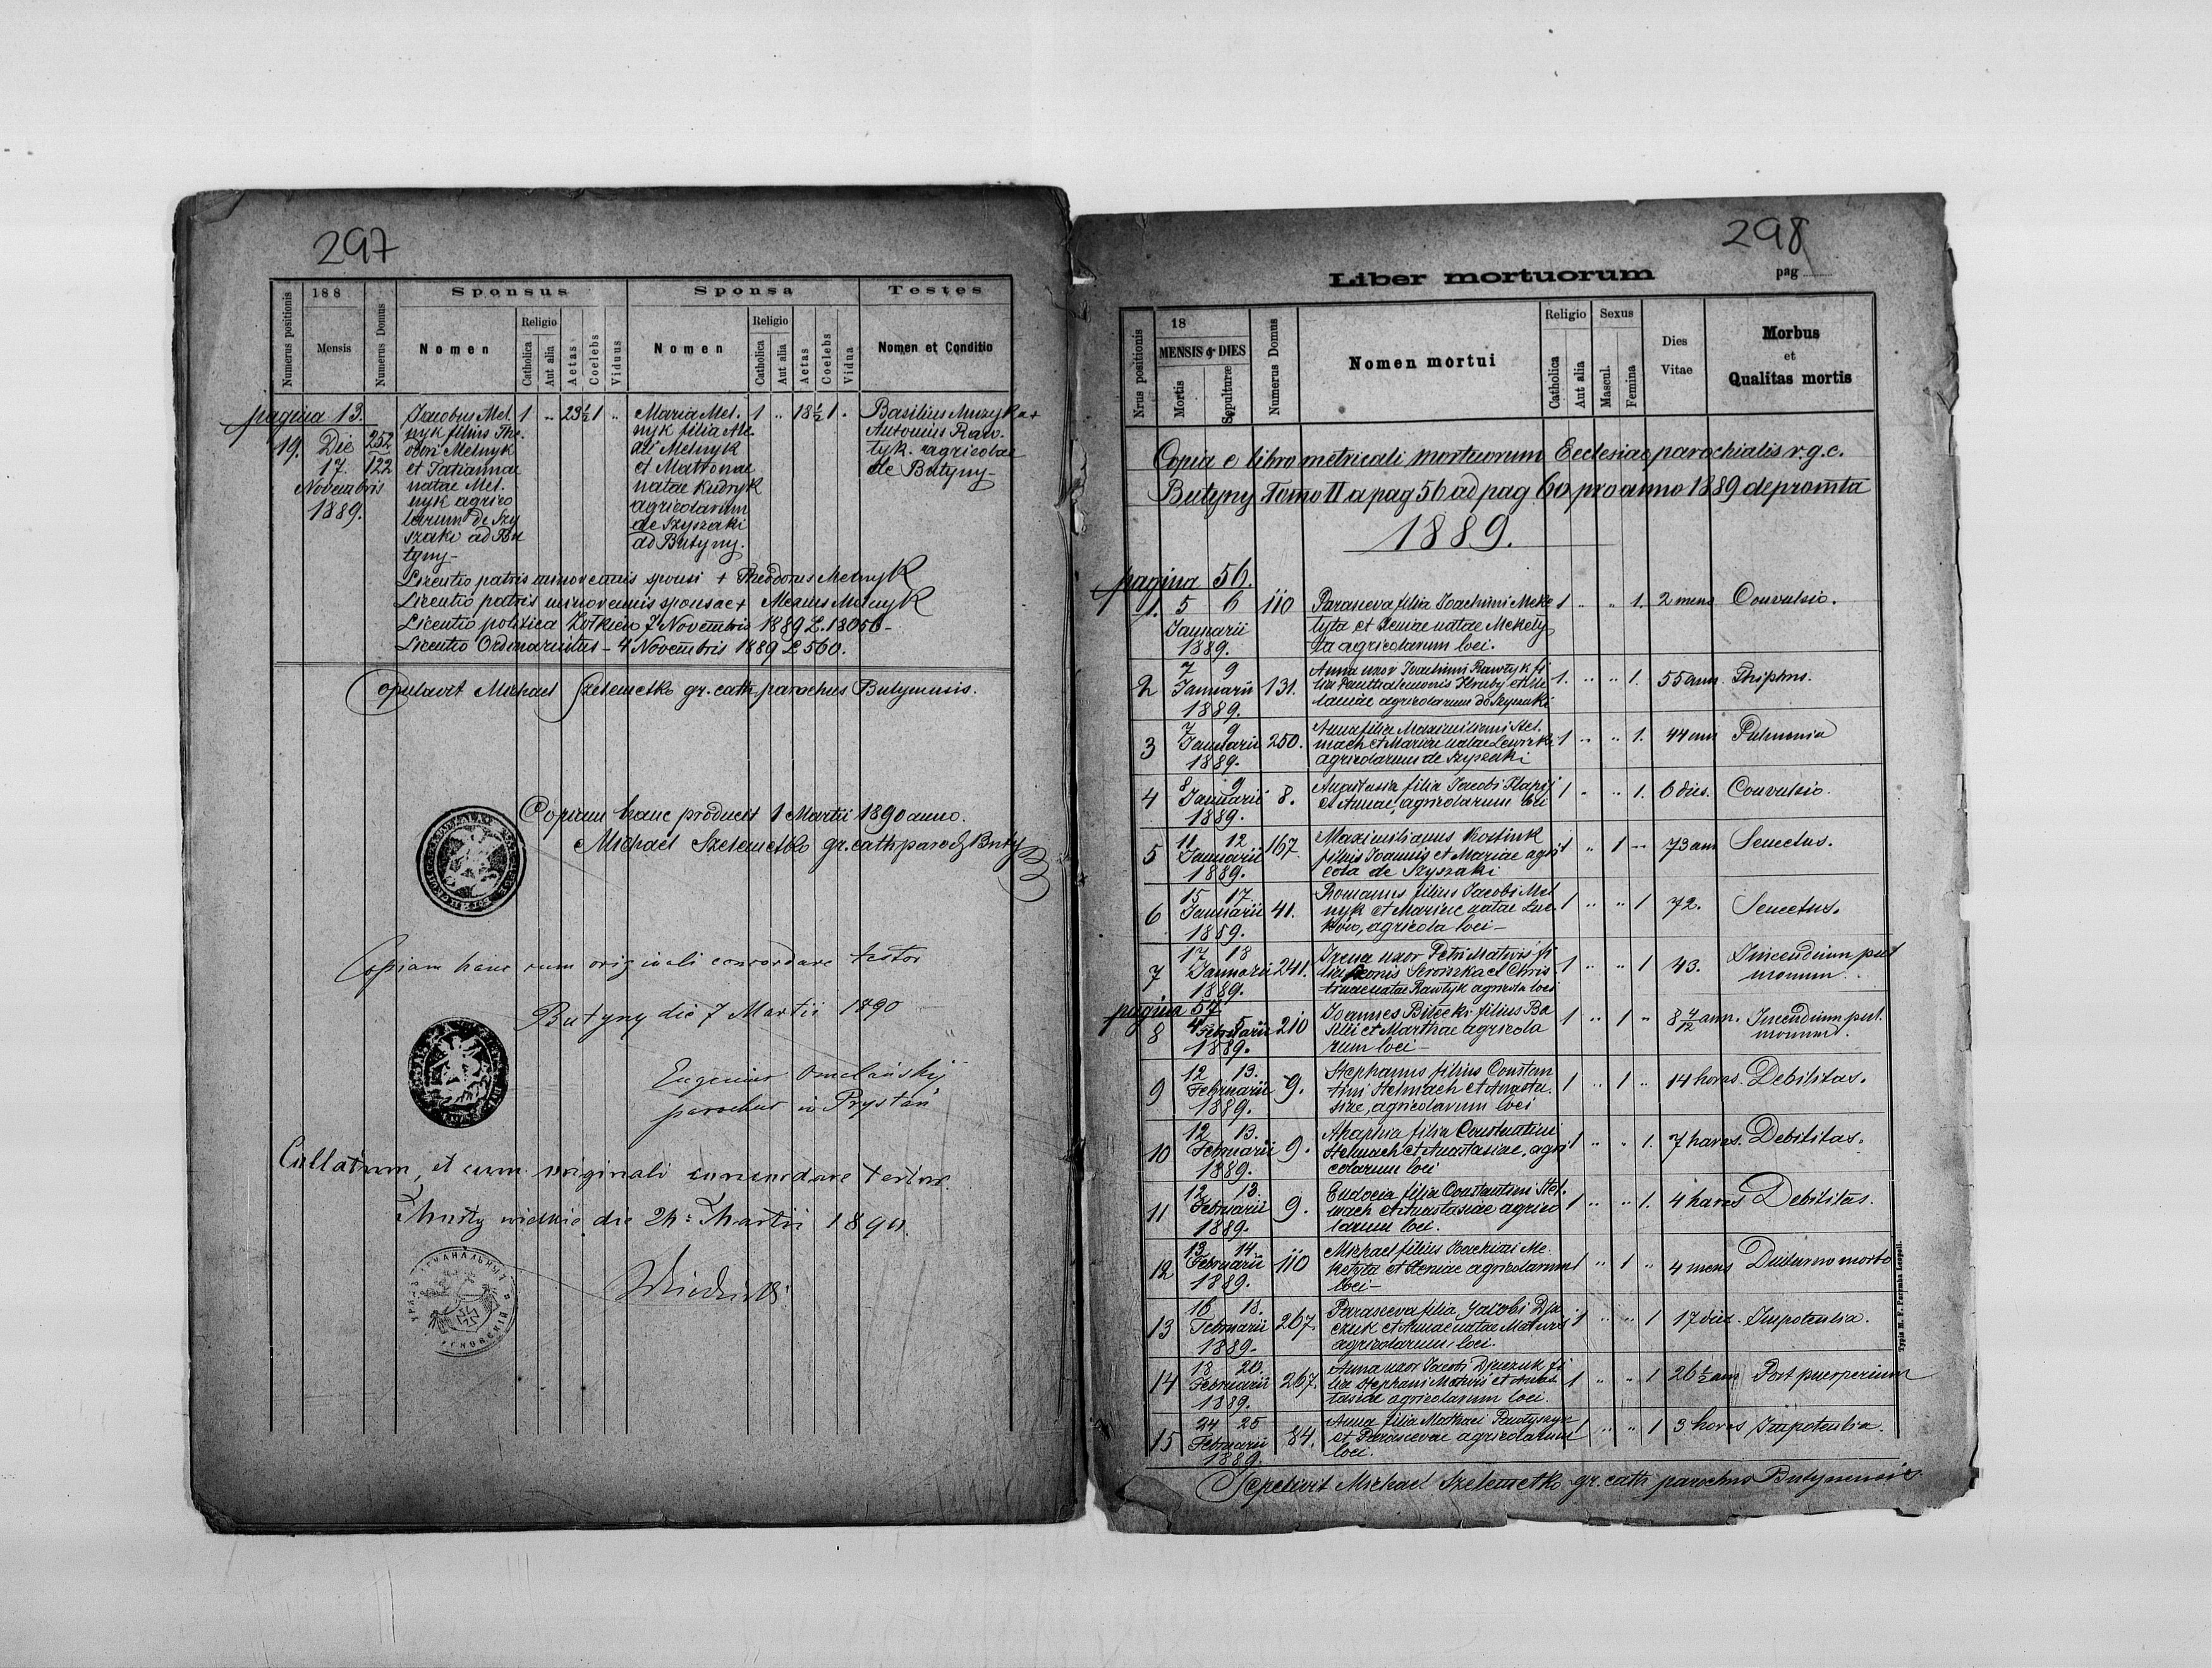 297
188
Sponsus
Sponsa
Testes
Numerus positionis
Mensis
Numerus Domus
Nomen
Religio
Catholica
Aut alia
Aetas
Coelebs
Viduus
Nomen
Religio
Catholica
Aut alia
Aetas
Coelebs
Vidua
Nomen et Conditio
pagina 13.
19. Die 17. Novembris 1889.
252
122
Jacobus Mel.
nyk filius The.
odori Melnyk
et Tatiannae
natae Mel.
nyk agrico
larum de Szy
szaki ad Bu
tyny-
1 „ 23½ 1 „
Maria Mel.
nyk filia
Melnyk
et Matronae
natae Kudryk
agricolarum
de Szyszaki
ad Butyny.
1 „ 18½ 1 .
Basilius Muzyka +
Antonius Raw.
tyk. agricolae
de Butyny-
Licentio patris minorennis sponsi + Theodorus Melnyk
Licentio patris minorennis sponsae + Melnyk
Licentio politica Zolkiew 7 Novembris 1889 L. 18056-
Licentio Ordinariatus - 4 Novembris 1889 L 560.
Copulavit Michael Szelemetko gr. cath. parochus Butynensis.
Copiam hanc producit 1 Martii 1890 anno.
Michael Szelemetko gr. cath paroch Buty
Copiam hanc cum originali concordare testor
Butyny die 7 Martii 1890
Eugenius Omelański
parochus in Prystań
Collatum, et cum originali concordare testor.
Mosty wielkie die 24 Martii 1890.
298
Liber mortuorum
pag
Nrus positionis
18
MENSIS & DIES
Mortis
Sepulturæ
Numerus Domus
Nomen mortui
Religio
Catholica
Aut alia
Sexus
Mascul.
Femina
Dies
Vitae
Morbus
et
Qualitas mortis
Copia e libro metricali mortuorum Ecclesiae parochialis r.g.c.
Butyny Tomo II a pag 56 ad pag 60 pro anno 1889 depromta
1889.
pagina 56.
1. 5 6 Januarii 1889. 110
Parasceva filia Joachimi Meke
tyta et Xeniae natae Mekety
ta agricolarum loci.
1 „ „ 1. 2 mens Convulsio.
2 7 9 Januarii 1889. 131.
Anna uxor Joachimi Rawtyk fi
lia Panthaleemonis Hruby et
agricolarum de Szyszaki
1. „ „ 1. 55 ann. Thiphus.
3 7 9 Januarii 1889. 250.
Anna filia Maximiliani Stel.
mach et Mariae natae Lewicki
agricolarum de Szyszaki
1 „ „ 1. 44 ann Pulmonia
4 8 9 Januarii 1889. 8.
Anastasia filia Jacobi Hapij
et Annae, agricolarum loci
1 „ „ 1. 6 dies. Convulsio.
5 11 12 Januarii 1889. 167.
Maximilianus Kostiuk
filius Joannis et Mariae agri
cola de Szyszaki
1 „ 1 „ 73 ann Senectus.
6 15 17 Januarii 1889. 41.
Romanus filius Jacobi Mel
nyk et Mariae natae
agricola loci-
1 „ „ 1 72. Senectus.
7 17 18 Januarii 1889. 241.
Irena uxor Petri Matwis fi
lia Leonis et Chris
tinae natae Rawtyk agricola loci
1 „ „ 1 43. Incendium pul
monum.
pagina 57.
8 4 5 Februarii 1889. 210
Joannes Bilecki filius Ba
silii et Marthae agricola
rum loci-
1 „ 1 „ 8 4/12 ann. Incendium pul.
monum.
9 12 13. Februarii 1889. 9.
Stephanus filius Constan
tini Stelmach et Anasta.
siae, agricolarum loci
1 „ 1 „ 14 horas. Debilitas.
10 12 13. Februarii 1889. 9.
Ahaphia filia Constantini
Stelmach et Anastasiae, agri
colarum loci
1 „ „ 1. 7 horas. Debilitas.
11 12 13. Februarii 1889. 9.
Eudocia filia Constantini Stel.
mach et Anastasiae agrico
larum loci.
1 „ „ 1. 4 horas Debilitas.
12 13 14. Februarii 1889. 110
Michael filius Joachimi Me.
ketyta et Xeniae agricolarum
loci-
1 „ 1 „ 4 mens Diuturno morbo
13 16 18. Februarii 1889. 267.
Parasceva filia Jacobi Dja
czuk et Annae natae Matwis
agricolarum loci.
1 „ „ 1 17 dies. Impotentia.
14 18 20. Februarii 1889. 267.
Anna uxor Jacobi Djaczuk fi
lia Stephani Matwis et Anas
tasiae agricolarum loci.
1 „ „ 1 26 ½ ann Post puerperium
15 24 25 Februarii 1889. 84.
Anna filia Mathaei
et Parascevae agricolarum
loci.
1 „ „ 1 3 horas Impotentia.
Sepelivit Michael Szelemetko gr. cath parochus Butynensis
Typis M. F. Poremba Leopoli.